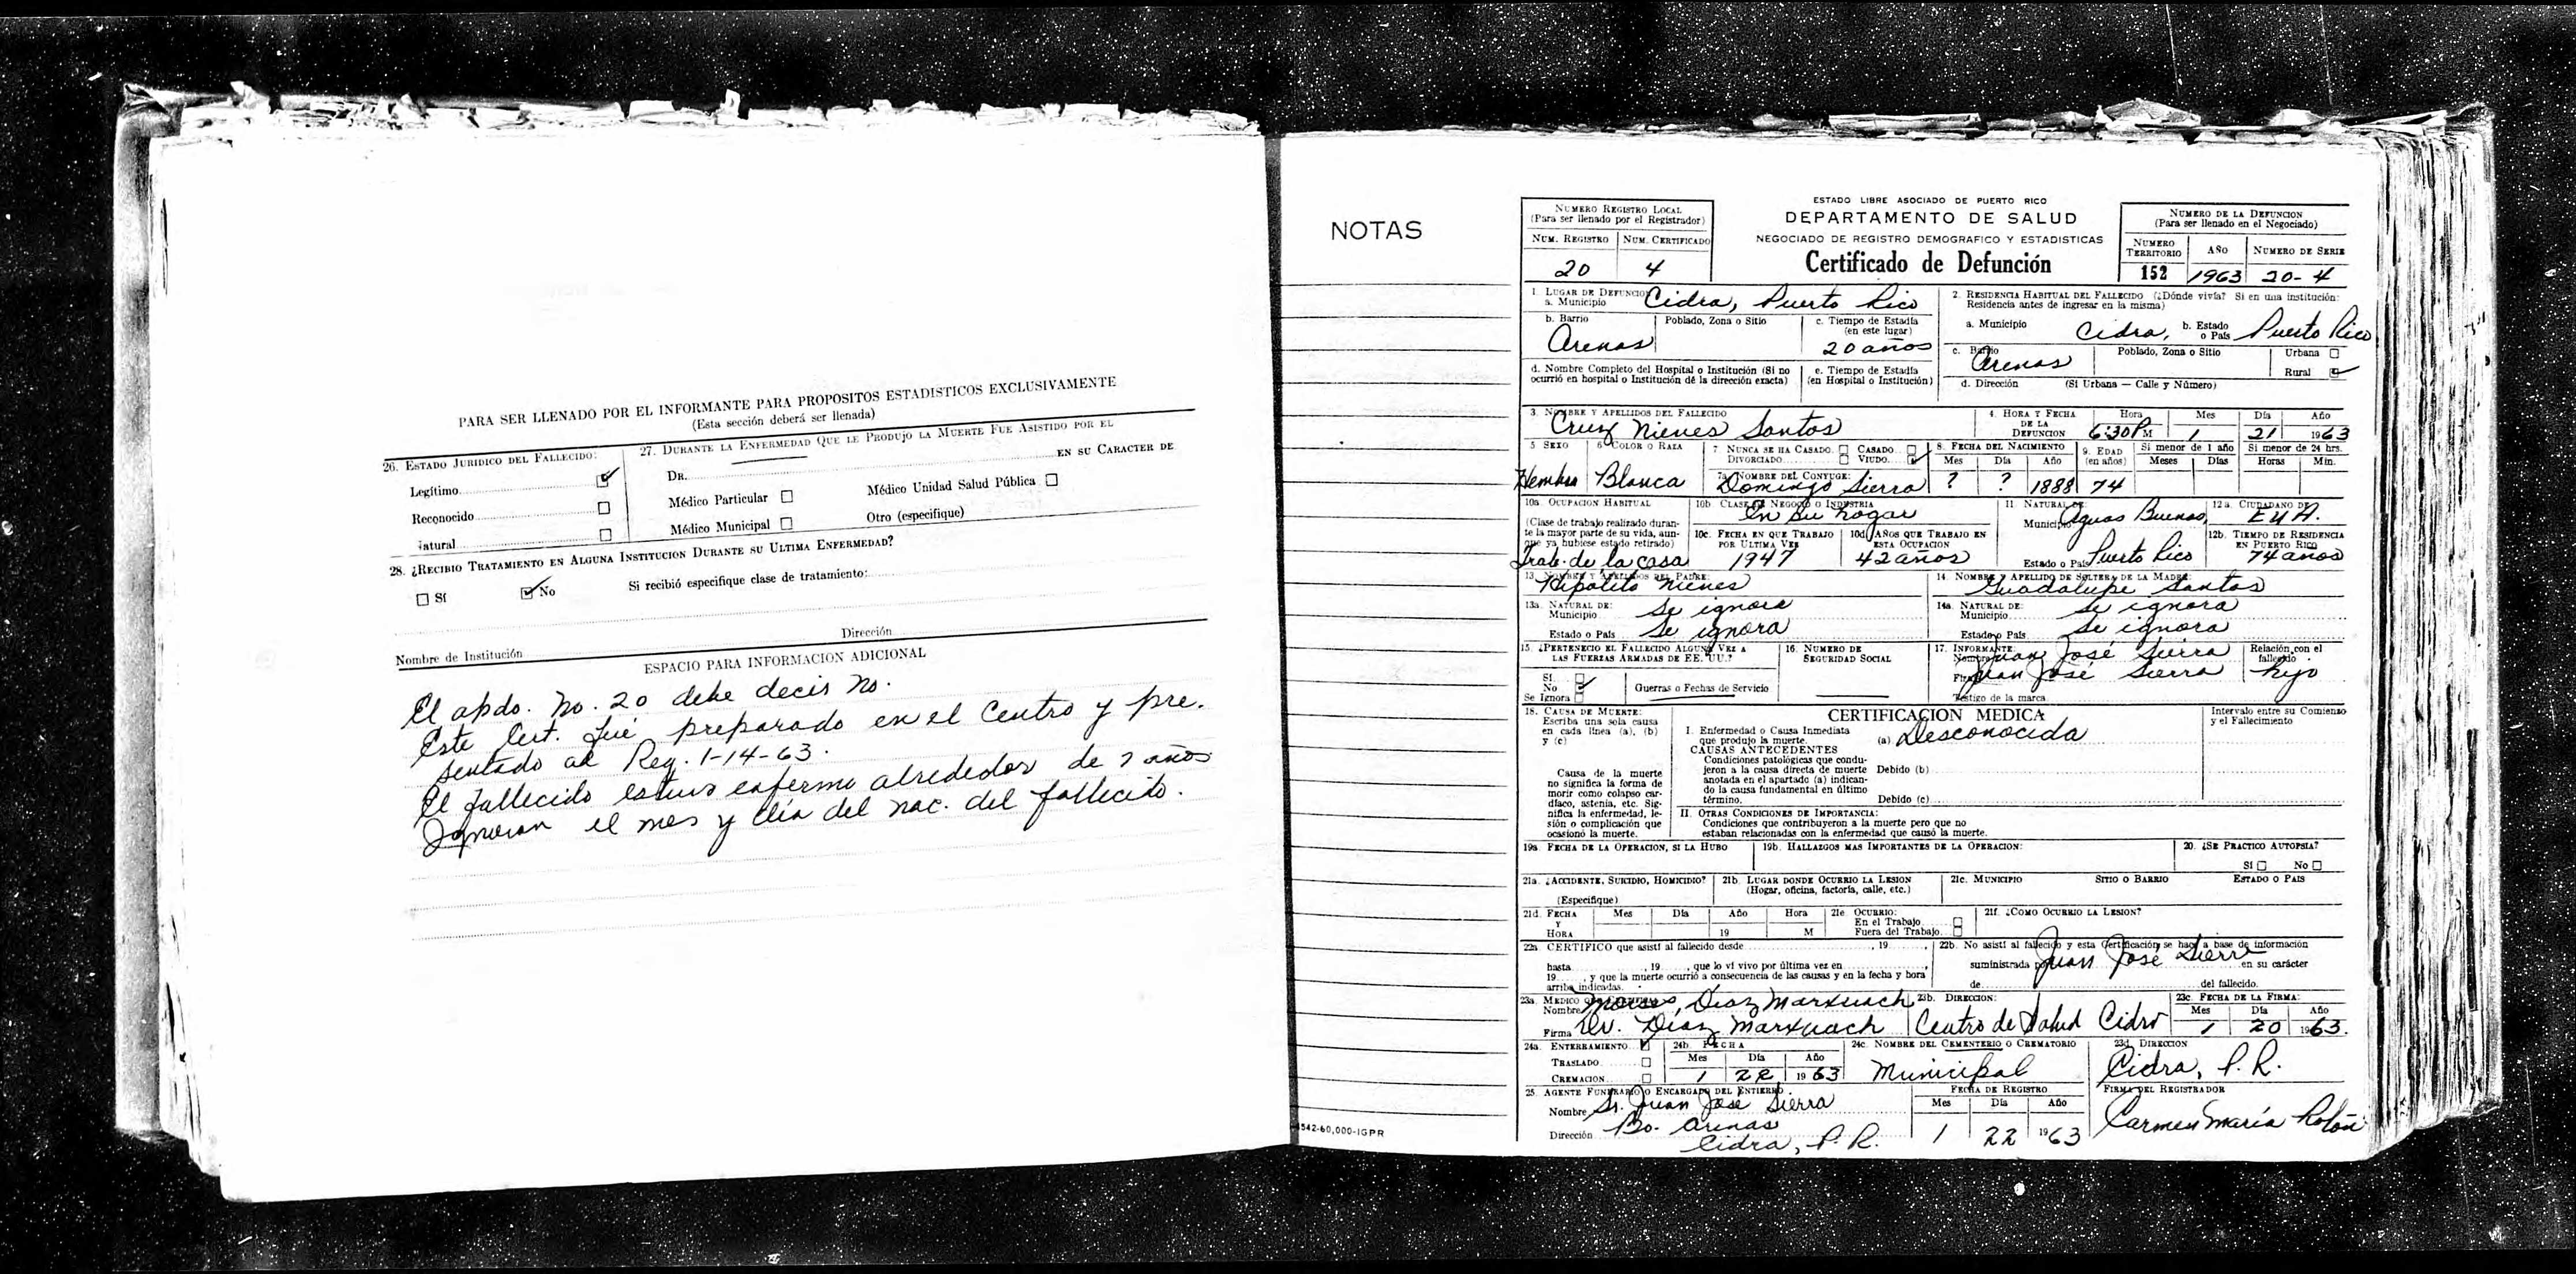 PARA SER LLENADO POR EL INFORMANTE PARA PROPOSITOS ESTADISTICOS EXCLUSIVAMENTE
(Esta sección deberá ser llenada)
26. ESTADO JURIDICO DEL FALLECIDO:
Legítimo
Reconocido
Natural
27. DURANTE LA ENFERMEDAD QUE LE PRODUJO LA MUERTE FUE ASISTIDO POR EL
DR. EN SU CARACTER DE
Médico Particular Médico Unidad Salud Pública
Médico Municipal Otro (especifique)
28. ¿RECIBIO TRATAMIENTO EN ALGUNA INSTITUCION DURANTE SU ULTIMA ENFERMEDAD?
Sí No Si recibió especifique clase de tratamiento:
Nombre de Institución Dirección
ESPACIO PARA INFORMACION ADICIONAL
El apdo. No. 20 debe decir no.
Este Cert. fué preparado en el Centro y pre-
sentado al Reg. 1-14-63.
El fallecido estuvo enfermo alrededor de 7 años
Ignoran el mes y día del nac. del fallecido.
NOTAS
542-60,000-IGPR
NUMERO REGISTRO LOCAL
(Para ser llenado por el Registrador)
NUM. REGISTRO NUM. CERTIFICADO
20 4
ESTADO LIBRE ASOCIADO DE PUERTO RICO
DEPARTAMENTO DE SALUD
NEGOCIADO DE REGISTRO DEMOGRAFICO Y ESTADISTICAS
Certificado de Defunción
NUMERO DE LA DEFUNCION
(Para ser llenado en el Negociado)
NUMERO TERRITORIO AÑO NUMERO DE SERIE
152 1963 20-4
1. LUGAR DE DEFUNCION
a. Municipio Cidra, Puerto Rico
b. Barrio Poblado, Zona o Sitio c. Tiempo de Estadía (en este lugar)
Arenas 20 años
d. Nombre Completo del Hospital o Institución (Si no
ocurrió en hospital o Institución dé la dirección exacta)
e. Tiempo de Estadía
(en Hospital o Institución)
2. RESIDENCIA HABITUAL DEL FALLECIDO (¿Dónde vivía? Si en una institución:
Residencia antes de ingresar en la misma)
a. Municipio Cidra, b. Estado o País Puerto Rico
c. Barrio Poblado, Zona o Sitio Urbana
Arenas Rural
d. Dirección (Si Urbana — Calle y Número)
3. NOMBRE Y APELLIDOS DEL FALLECIDO
Cruz Nieves Santos
4. HORA Y FECHA DE LA DEFUNCION
Hora Mes Día Año
6:30 P M 1 21 1963
5 SEXO
Hembra
6 COLOR O RAZA
Blanca
7 NUNCA SE HA CASADO CASADO
DIVORCIADO VIUDO
7a NOMBRE DEL CONYUGE:
Domingo Sierra
8. FECHA DEL NACIMIENTO
Mes Día Año
? ? 1888
9. EDAD
(en años)
74
Si menor de 1 año
Meses Días
Si menor de 24 hrs.
Horas Min.
10a OCUPACION HABITUAL
(Clase de trabajo realizado duran-
te la mayor parte de su vida, aun-
que ya hubiese estado retirado)
Trab. de la casa
10b CLASE DE NEGOCIO O INDUSTRIA
En su hogar
10c. FECHA EN QUE TRABAJO
POR ULTIMA VEZ
1947
10d AÑOS QUE TRABAJO EN
ESTA OCUPACION
42 años
11 NATURAL DE:
Municipio Aguas Buenas,
Estado o País Puerto Rico
12a. CIUDADANO DE
E U A.
12b. TIEMPO DE RESIDENCIA
EN PUERTO RICO
74 años
13 NOMBRE Y APELLIDOS DEL PADRE:
Hipolito Nieves
13a. NATURAL DE:
Municipio Se ignora
Estado o País Se ignora
14. NOMBRE Y APELLIDO DE SOLTERA DE LA MADRE:
Guadalupe Santos
14a. NATURAL DE:
Municipio Se ignora
Estado o País Se ignora
15. ¿PERTENECIO EL FALLECIDO ALGUNA VEZ A
LAS FUERZAS ARMADAS DE EE. UU.?
Sí
No
Se Ignora
Guerras o Fechas de Servicio
16. NUMERO DE
SEGURIDAD SOCIAL
17. INFORMANTE:
Nombre Juan José Sierra
Firma Juan José Sierra
Testigo de la marca
Relación con el
fallecido
hijo
18. CAUSA DE MUERTE:
Escriba una sola causa
en cada línea (a), (b)
y (c)
Causa de la muerte
no significa la forma de
morir como colapso car-
díaco, astenia, etc. Sig-
nifica la enfermedad, le-
sión o complicación que
ocasionó la muerte.
CERTIFICACION MEDICA
I. Enfermedad o Causa Inmediata
que produjo la muerte. (a) Desconocida
CAUSAS ANTECEDENTES
Condiciones patológicas que condu-
jeron a la causa directa de muerte Debido (b)
anotada en el apartado (a) indican-
do la causa fundamental en último
término. Debido (c)
II. OTRAS CONDICIONES DE IMPORTANCIA:
Condiciones que contribuyeron a la muerte pero que no
estaban relacionadas con la enfermedad que causó la muerte.
Intervalo entre su Comienzo
y el Fallecimiento
19a. FECHA DE LA OPERACION, SI LA HUBO
19b. HALLAZGOS MAS IMPORTANTES DE LA OPERACION:
20. ¿SE PRACTICO AUTOPSIA?
Sí No
21a. ¿ACCIDENTE, SUICIDIO, HOMICIDIO?
(Especifique)
21b. LUGAR DONDE OCURRIO LA LESION
(Hogar, oficina, factoría, calle, etc.)
21c. MUNICIPIO SITIO O BARRIO ESTADO O PAIS
21d. FECHA Y HORA
Mes Día Año Hora
19 M
21e OCURRIO:
En el Trabajo
Fuera del Trabajo
21f. ¿COMO OCURRIO LA LESION?
22a. CERTIFICO que asistí al fallecido desde , 19 ,
hasta , 19 , que lo ví vivo por última vez en ,
19 , y que la muerte ocurrió a consecuencia de las causas y en la fecha y hora
arriba indicadas.
22b. No asistí al fallecido y esta Certificación se hace a base de información
suministrada por Juan José Sierra en su carácter
de del fallecido.
23a. MEDICO QUE CERTIFICA:
Nombre Moises Díaz Marxuach
Firma Dr. Díaz Marxuach
23b. DIRECCION:
Centro de Salud Cidra
23c. FECHA DE LA FIRMA:
Mes Día Año
1 20 1963.
24a. ENTERRAMIENTO
TRASLADO
CREMACION
24b. FECHA
Mes Día Año
1 22 1963
24c. NOMBRE DEL CEMENTERIO O CREMATORIO
Municipal
23d. DIRECCION
Cidra, P. R.
25. AGENTE FUNERARIO O ENCARGADO DEL ENTIERRO
Nombre Sr. Juan José Sierra
Dirección Bo. Arenas
Cidra, P. R.
FECHA DE REGISTRO
Mes Día Año
1 22 1963
FIRMA DEL REGISTRADOR
Carmen María Rolón